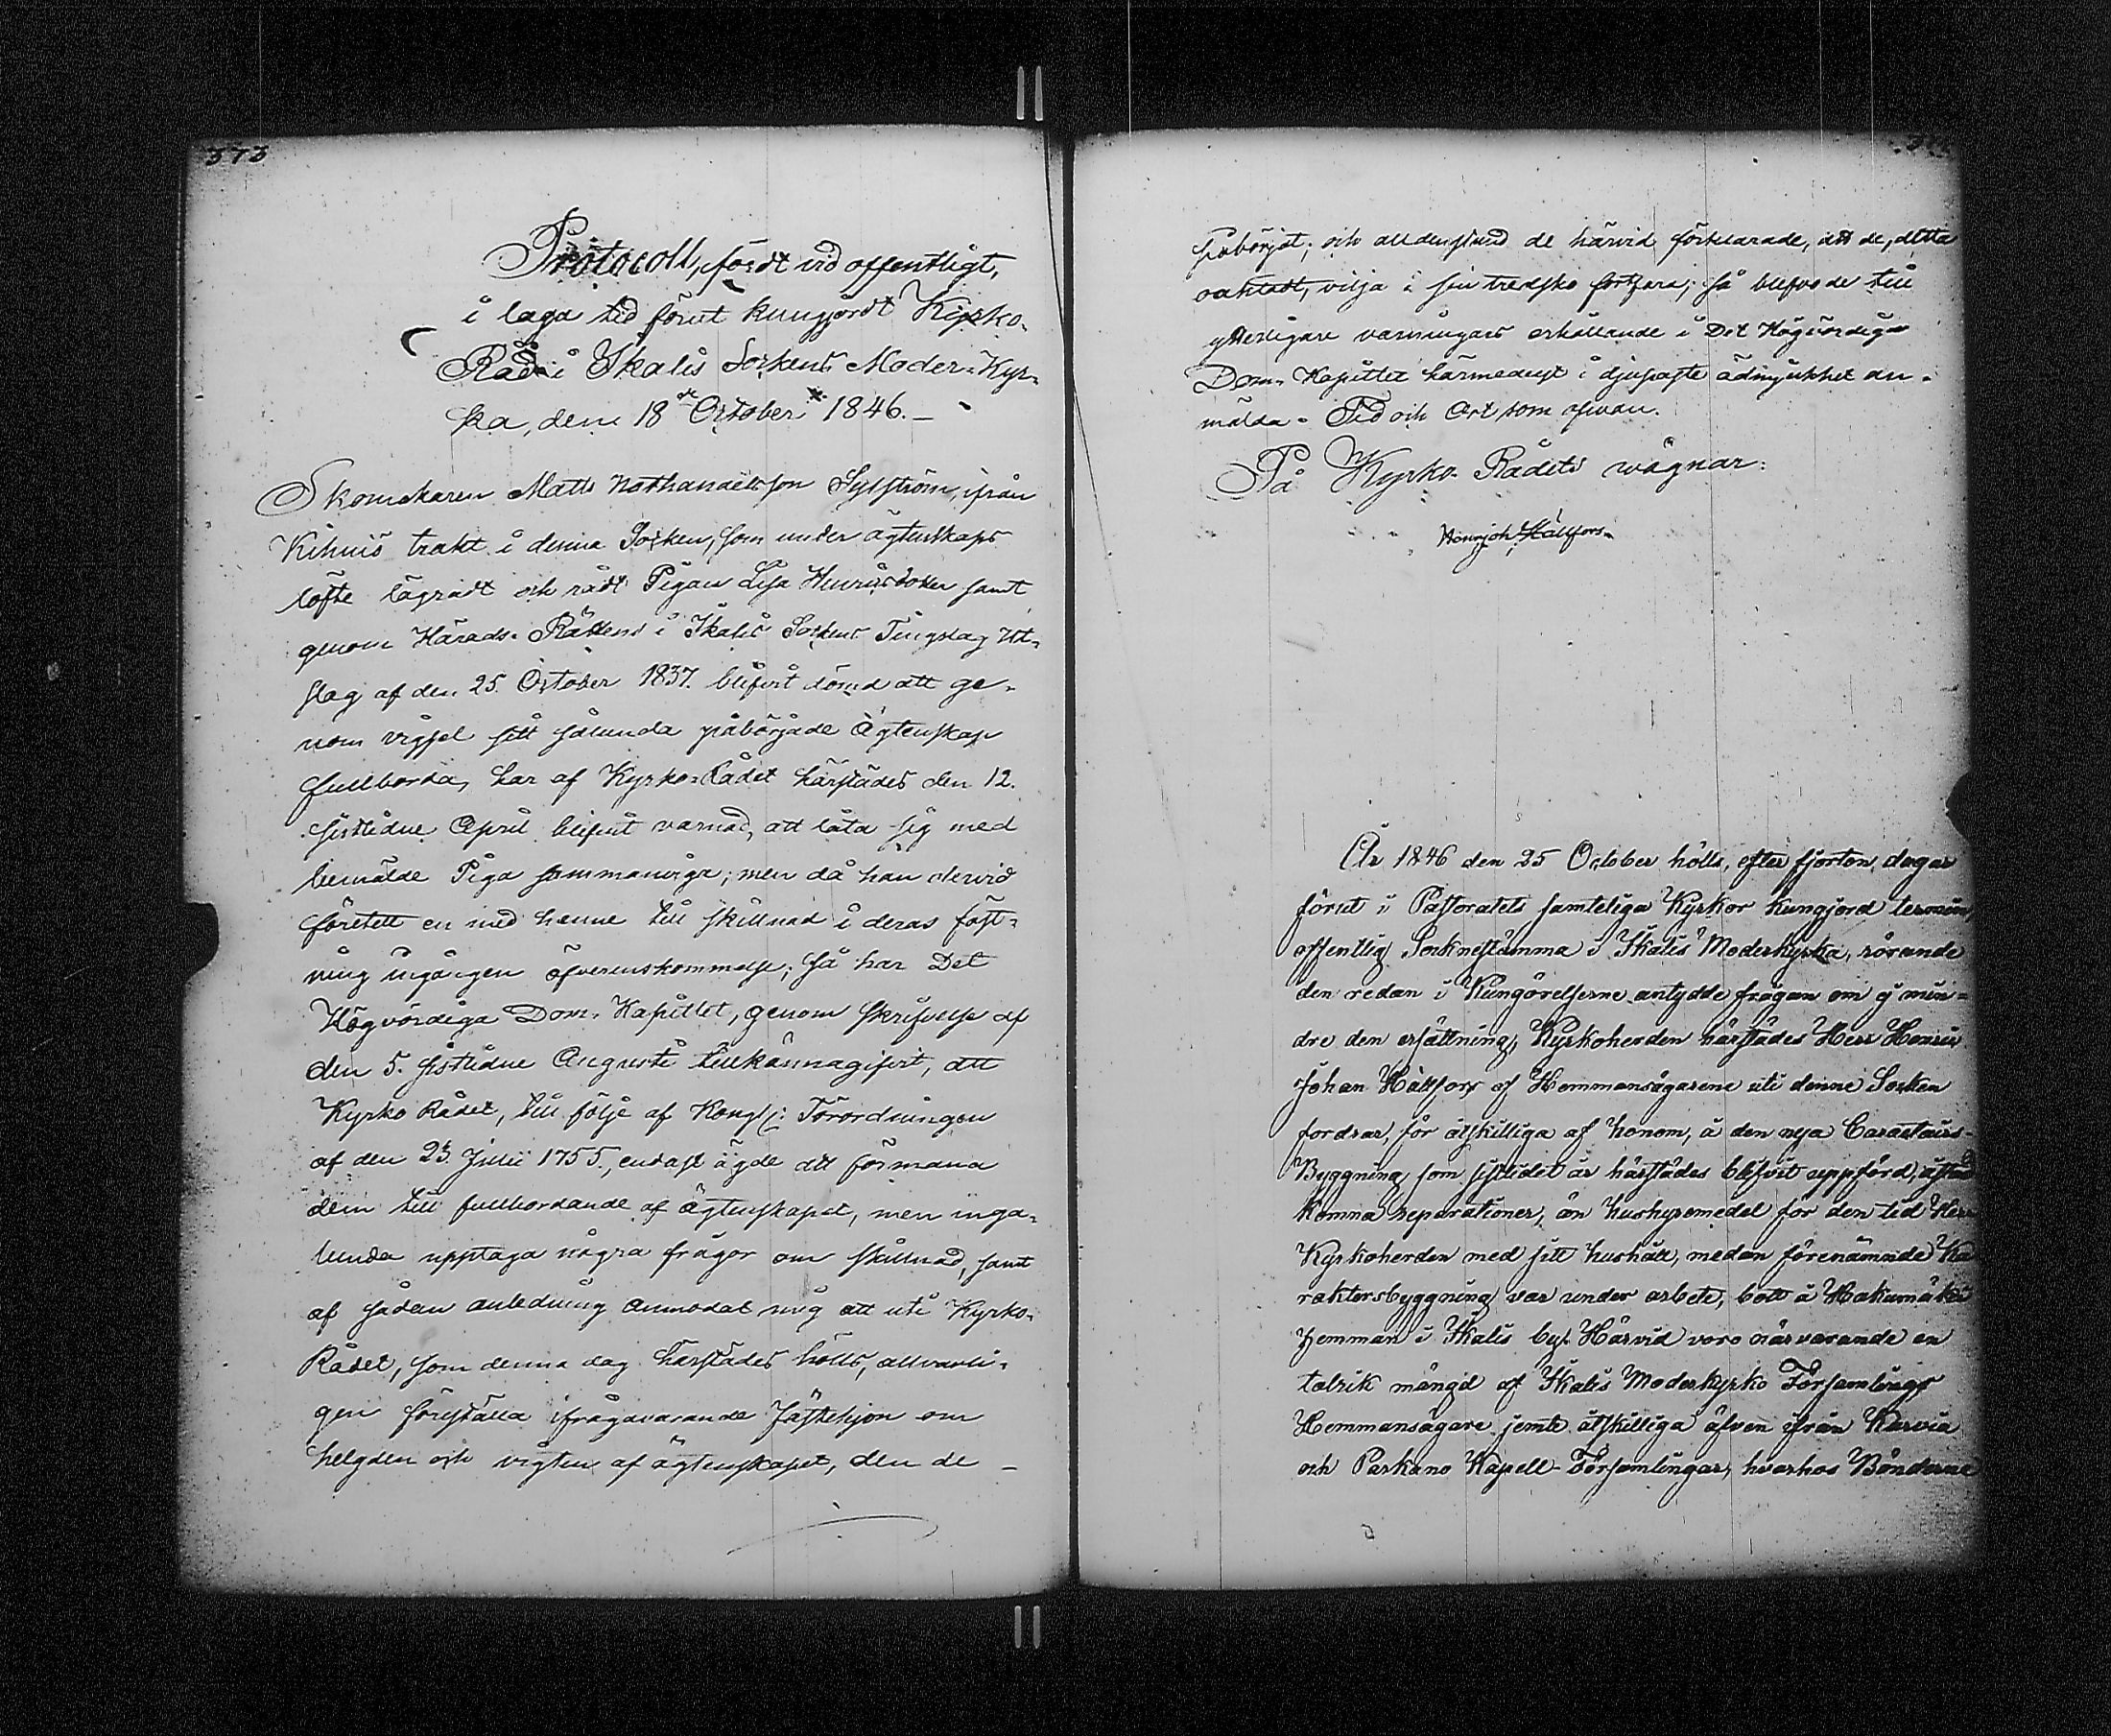 373
Protocoll, fördt vid offentligt,
i laga tid förut kungjordt Kyrko-
Råd i Ikalis Sockens Moder-Kyr-
ka, den 18de October 1846.—
Skomakaren Matts Nathanaelsson Sylström, ifrån
Kihniö trakt i denna Socken, som under ägtenskaps
löfte lägrat och rådt Pigan Lisa Henricsdotter samt
genom Härads-Rättens i Ikalis Sockens Tingslag Ut-
slag af den 25. October 1837. blifvit dömd att ge-
nom vigsel sitt sålunda påbörjade Ägtenskap
fullborda, har af Kyrko-Rådet härstädes den 12.
sistlidne April blifvit varnad, att låta sig med
bemälde Piga sammanviga; men då han dervid
företett en med henne till skillnad i deras fäst-
ning ingången öfverenskommelse; så har Det
Högvördiga Dom-Kapitlet, genom skrifvelse af
den 5. sistlidne Augusti tillkännagifvit, att
Kyrko Rådet, till följe af Kongl: Förordningen
af den 23. Julii 1755., endast ägde att förmana
dem till fullbordande af ägtenskapet, men inga-
lunda upptaga några frågor om skillnad, samt
af sådan anledning anmodat mig att uti Kyrko-
Rådet, som denna dag härstädes hölls, allvarli-
gen föreställa ifrågavarande Fästehjon om
helgden och vigten af ägtenskapet, den de
påbörjat; och alldenstund de härvid förklarade, att de, detta
oaktadt, vilja i sin tredsko fortfara; så blefvo de till
ytterligare varningars erhållande i Det Högvördiga
Dom-Kapitlet härmedelst i djupaste ödmjukhet an-
mälda. Tid och Ort som ofvan.
På Kyrko-Rådets vägnar:
Henr. Joh. Hällfors.
År 1846 den 25 October hölls, efter fjorton dagar
förut i Pastoratets samteliga Kyrkor kungjord termin,
offentlig Socknestämma i Ikalis Moderkyrka, rörande
den redan i Kungörelserne antydde frågan om ej min-
dre den ersättning, Kyrkoherden härstädes Herr Henric
Johan Hällfors af Hemmansägarene uti denne Socken
fordrar, för åtskilliga af honom, å den nya Caracteurs-
Byggning som sistlidet år härstädes blifvit uppförd, åstad
komna reparationer, än hushyremedel för den tid Herr
Kyrkoherden med sitt hushåll, medan förenämnde Ka
raktersbyggning var under arbete, bott å Hakumäki
hemman i Ikalis by. Härvid voro närvarande en
talrik mängd af Ikalis Moderkyrko Församlings
Hemmansägare jemte åtskilliga äfven ifrån Karvia
och Parkano Kapell-Församlingar, hvarhos Bönderne